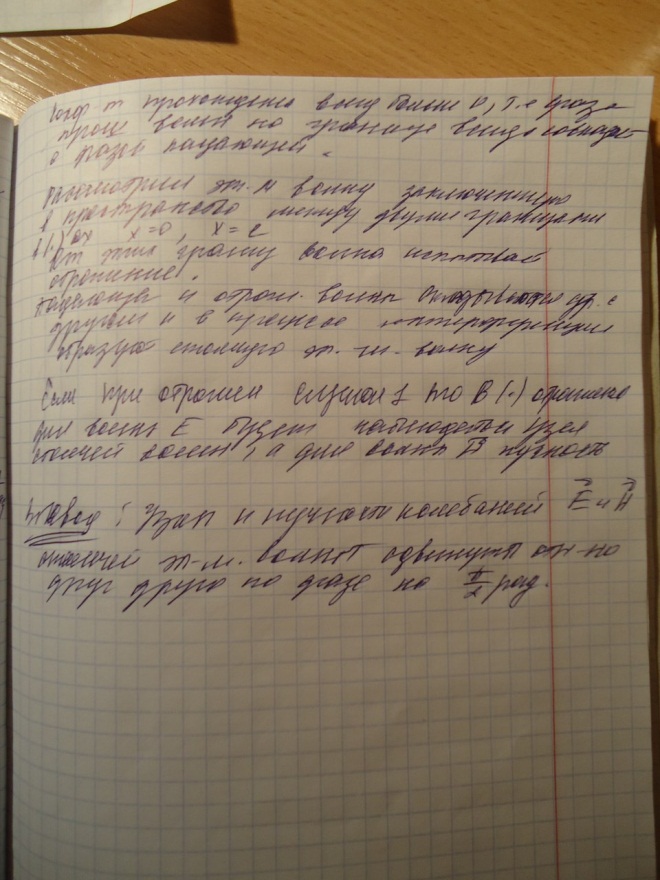 Коэф-т прохождения всегда больше 0, т.е фаза
прош волны на границе всегда совпадает
с фазой падающей.
Рассмотрим эл.-м волну заключенную
в пространство между двумя границами
в (·) ox x=0, x=
от этих границ волна испытывает
отражение.
Падающая и отраж. волны складываются др. с
другом и в процессе интерференции
образуют стоячую эл.-м. волну
Если при отражении случай 1 то в (·) отражения
для волны E будет наблюдаться узел
стоячей волны, а для волны H пучность
Вывод: Узлы и пучности колебаний E⃗ и H⃗
стоячей эл-м. волны сдвинуты отн-но
друг друга по фазе на π/2 рад.